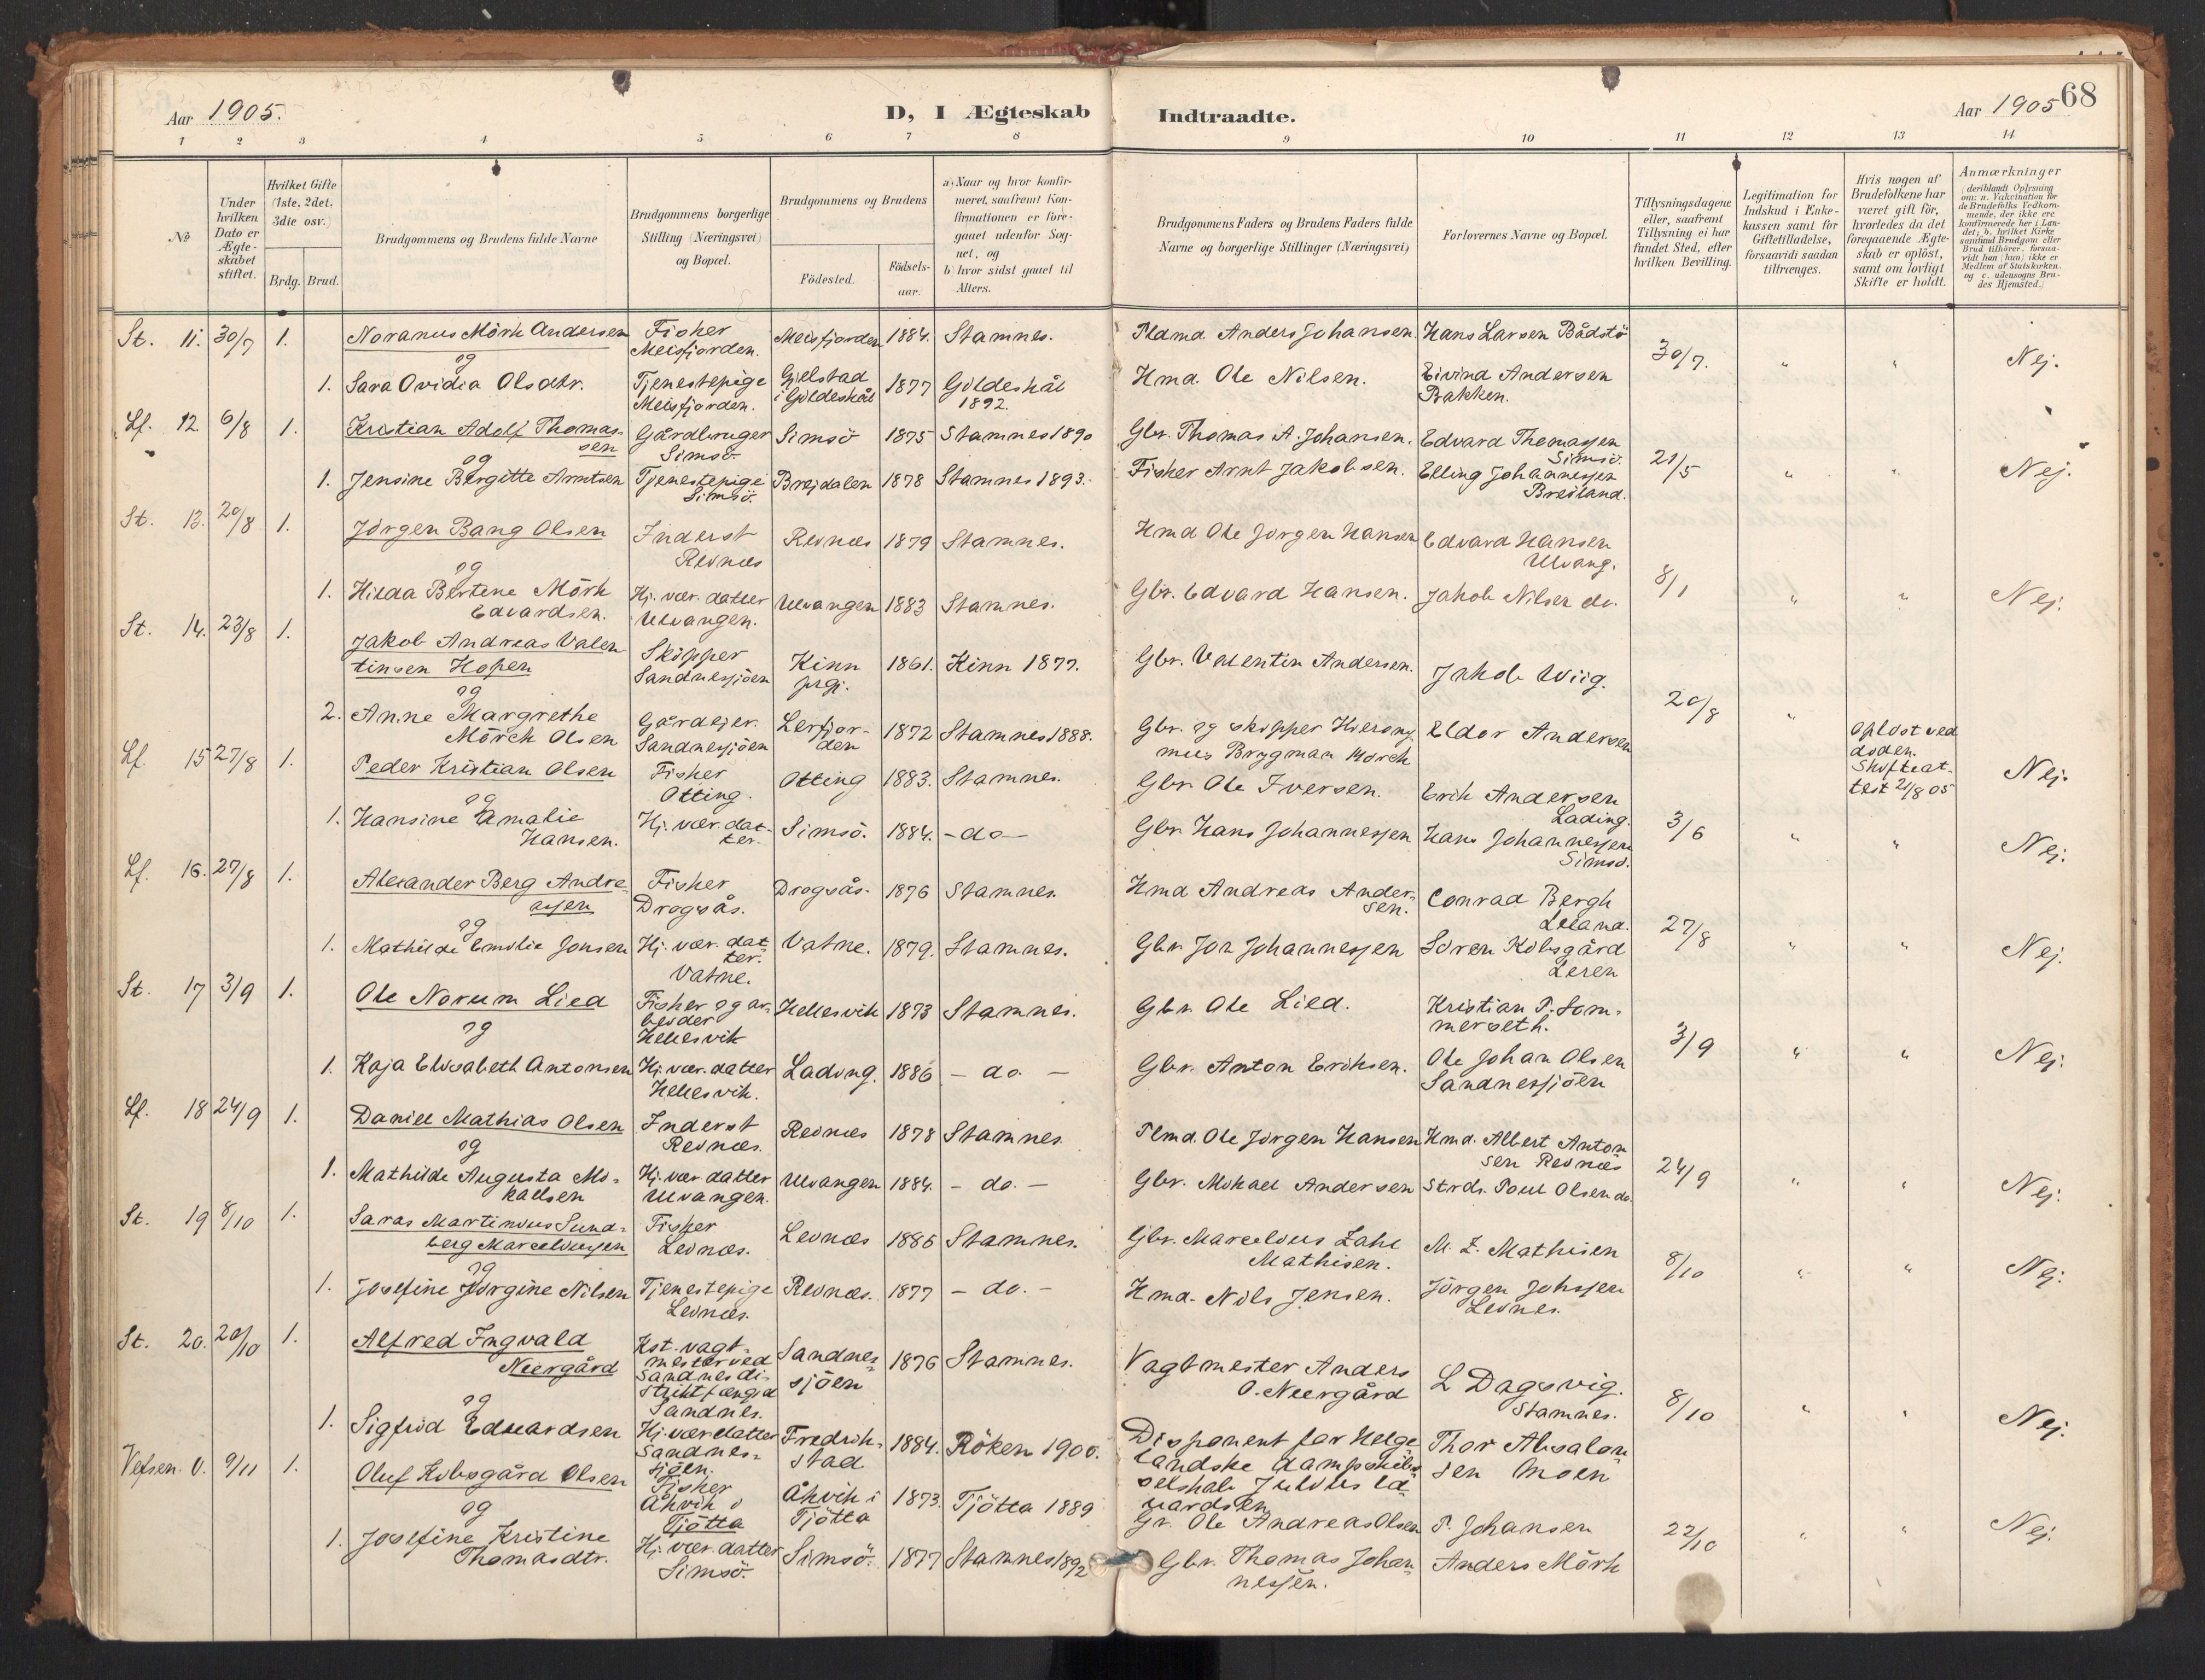 68
Aar 1905.
D, I Ægteskab Indtraadte.
Aar 1905
1 2 3 4 5 6 7 8 9 10 11 12 13 14
No
Under hvilken Dato er Ægteskabet stiftet.
Hvilket Gifte (1ste, 2det, 3die osv.)
Brdg. Brud.
Brudgommens og Brudens fulde Navne
Brudgommens borgerlige Stilling (Næringsvei) og Bopæl.
Brudgommens og Brudens
Födested.
Födsels-aar.
a) Naar og hvor konfirmeret, saafremt Konfirmationen er foregaaet udenfor Sognet, og
b) hvor sidst gaaet til Alters.
Brudgommens Faders og Brudens Faders fulde Navne og borgerlige Stillinger (Næringsvei)
Forlovernes Navne og Bopæl.
Tillysningsdagene eller, saafremt Tillysning ei har fundet Sted, efter hvilken Bevilling.
Legitimation for Indskud i Enkekassen samt for Giftetilladelse, forsaavidt saadan tiltrænges.
Hvis nogen af Brudefolkene har været gift för, hvorledes da det foregaaende Ægteskab er oplöst, samt om lovligt Skifte er holdt.
Anmærkninger (deriblandt Oplysning om: a. Vakcination for de Brudefolks Vedkommende, der ikke ere konfirmerede her i Landet; b. hvilket Kirkesamfund Brudgom eller Brud tilhörer, forsaavidt han (hun) ikke er Medlem af Statskirken. og c. udensogns Brudes Hjemsted.)
St. 11. 30/7 1. Noranus Mörk Andersen Fisker Meisfjorden. Meisfjorden 1884. Stamnes. Plamd. Anders Johansen. Hans Larsen Bådstö 30/7. " " Nej.
og
1. Sara Ovidia Olsdtr. Tjenestepige Meisfjorden. Gjelstad i Gildeskål 1877 Gildeskål 1892. Hmd. Ole Nilsen. Eivind Andersen Bakken.
Lf. 12. 6/8 1. Kristian Adolf Thomassen Gårdbruger Simsö. Simsö 1875 Stamnes 1890 Gbr. Thomas A. Johansen. Edvard Thomassen Simsö. 21/5 " " Nej.
og
1. Jensine Birgitte Arntsen Tjenestepige Simsö. Brejdalen 1878 Stamnes 1893. Fisker Arnt Jakobsen. Elling Johannessen Breiland.
St. 13. 20/8 1. Jörgen Bang Olsen Inderst Reines Reines 1879 Stamnes. Hmd Ole Jörgen Hansen Edvard Hansen Ulvang. 8/1 " " Nej.
og
1. Hilda Bertine Mörk Edvardsen. Hj. vær. datter Ulvangen. Ulvangen 1883 Stamnes. Gbr. Edvard Hansen. Jakob Nilsen do.
St. 14. 23/8 1. Jakob Andreas Valentinsen Hopen Skipper Sandnessjöen Kinn prgj. 1861. Kinn 1877. Gbr. Valentin Andersen. Jakob Wiig. 20/8 "
og
2. Anne Margrethe Mörch Olsen Gårdejer. Sandnessjöen Leirfjorden 1872 Stamnes 1888. Gbr. og skipper Hieronymus Brygman Morch Eldor Andersen Oplöst ved döden. Skifteattest 21/8 05 Nej.
Lf. 15 27/8 1. Peder Kristian Olsen Fisker Otting. Otting 1883. Stamnes. Gbr. Ole Iversen. Erik Andersen Lading. 3/6 " " Nej.
og
1. Hansine Amalie Hansen. Hj. vær. datter. Simsö. 1884. - do - Gbr. Hans Johannessen Hans Johannessen Simsö.
Lf. 16. 27/8 1. Alexander Berg Andreassen Fisker Drogsås. Drogsås. 1876 Stamnes. Hmd Andreas Andersen. Conrad Bergh Leland. 27/8 " " Nej.
og
1. Mathilde Emilie Jonsen Hj. vær. datter. Vatne. Vatne. 1879. Stamnes. Gbr. Jon Johannessen Sören Kobsgård Leren
St. 17 3/9 1. Ole Norum Lied Fisker og arbeider Hellesvik Hellesvik 1873 Stamnes. Gbr. Ole Lied. Kristian P. Sommerseth. 3/9 " " Nej.
og
1. Kaja Elisabeth Antonsen Hj. vær. datter Hellesvik. Lading. 1886 - do - Gbr. Anton Eriksen. Ole Johan Olsen Sandnessjöen
Lf. 18 24/9 1. Daniel Mathias Olsen Inderst Reines. Reines 1878 Stamnes. Plmd. Ole Jörgen Hansen Hmd. Albert Antonsen Reines 24/9 " " Nej.
og
1. Mathilde Augusta Mikalsen Hj. vær datter Ulvangen. Ulvangen 1884. - do. - Gbr. Mikael Andersen Strds. Poul Olsen do.
St. 19 8/10 1. Saras Martinius Sundberg Marceliussen Fisker Leines. Leines 1886 Stamnes. Gbr. Marcelius Zahl Mathisen. M. Z. Mathisen 8/10 " " Nej.
og
1. Josefine Jörgine Nilsen Tjenestepige Leines. Reines. 1877 - do. - Hmd. Nils Jensen. Jörgen Johssen Leines.
St. 20. 20/10 1. Alfred Ingvald Neergård Kst. vagtmester ved Sandnes distriktsfængsel Sandnes. Sandnessjöen 1876 Stamnes. Vagtmester Anders O. Neergård L Dagsvig. Stamnes. 8/10 " " Nej.
og
1. Sigfrid Edvardsen Hj. vær datter Sandnessjöen. Fredrikstad 1884. Röken 1900. Disponent for Helgelandske dampskibsselskab Julius Edvardsen Thor Absalonsen Moen
Vefsen 0. 9/11 1. Oluf Kobsgård Olsen Fisker Åkvik i Tjötta Åkvik i Tjötta 1873. Tjötta 1889 Gr. Ole Andreas Olsen P. Johansen 22/10 " " Nej.
og
1. Josefine Kristine Thomasdtr. Hj. vær. datter Simsö. Simsö. 1877 Stamnes 1892 Gbr. Thomas Johannessen. Anders Mörk